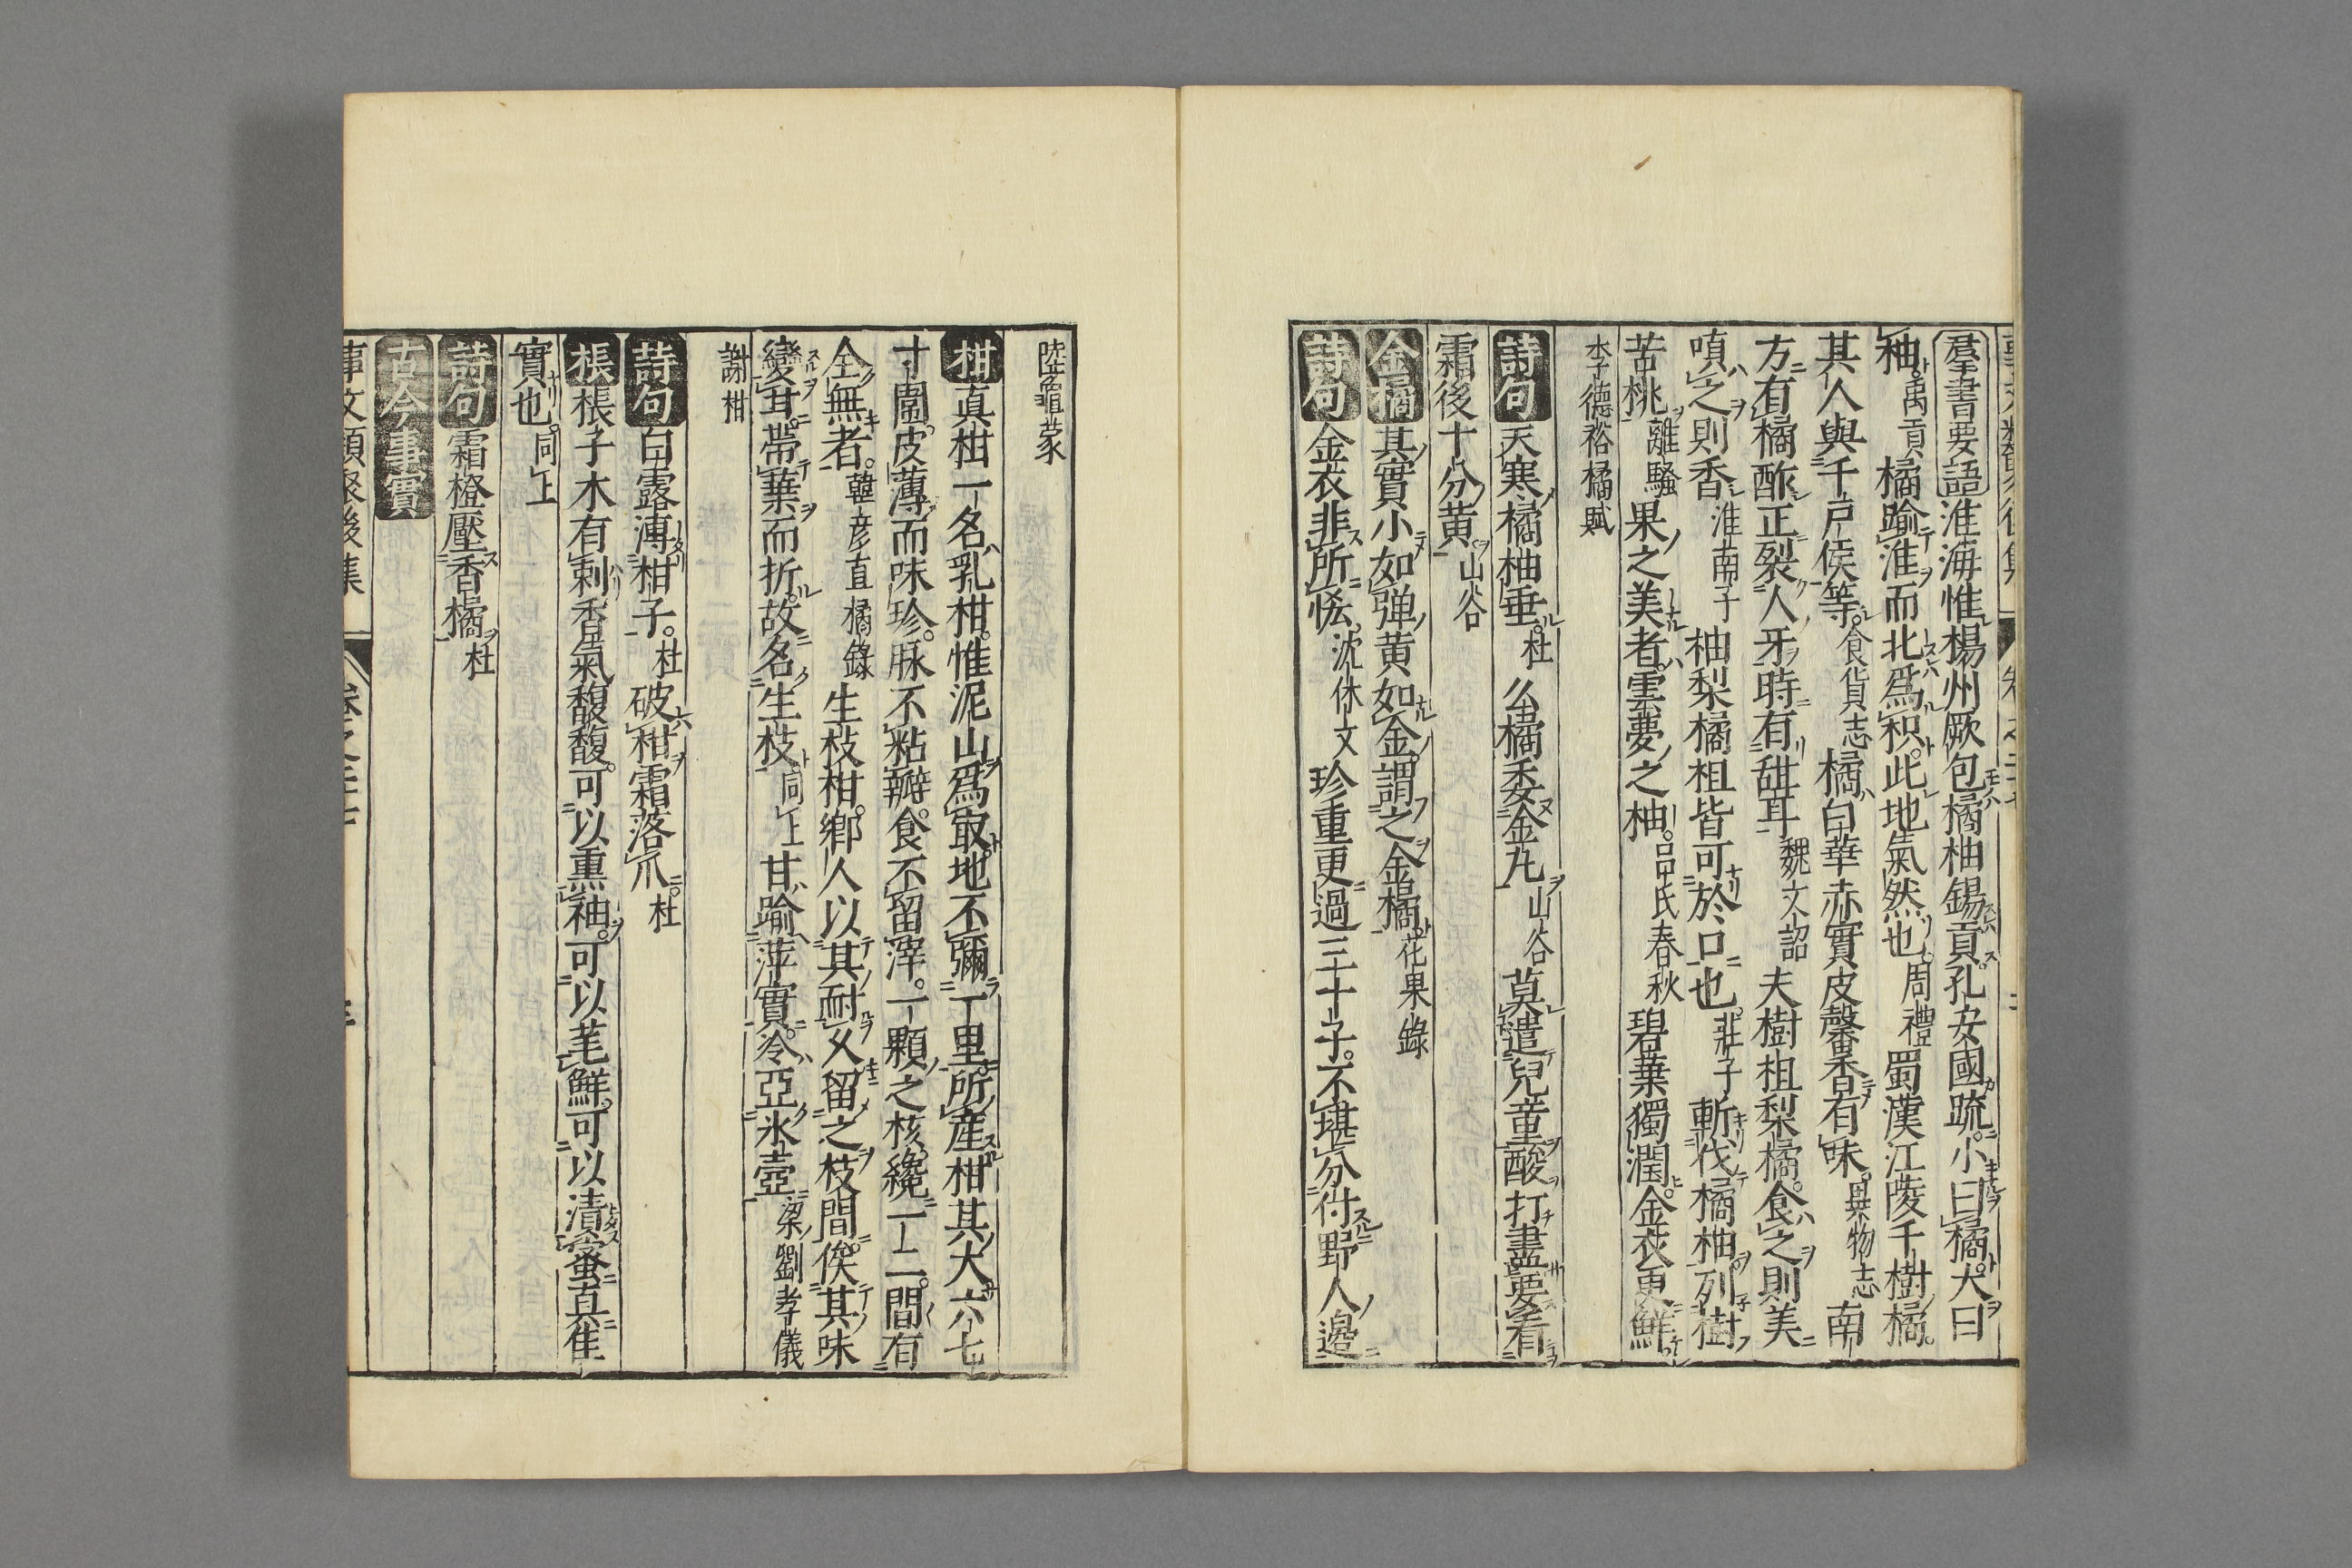 羣書要語淮海惟楊州厥包橘柚錫貢孔安國疏小曰橘大曰
柚禹貢橘踰淮而北爲枳此地氣然也周禮蜀漢江陵千樹橘
其人與千戸侯等食貨志橘白華赤實皮馨香有味異物志南
方有橘酢正裂人牙時有甜耳魏文詔夫樹柤梨橘食之則美
嗅之則香淮南子柚梨橘柤皆可於口也莊子斬伐橘柚列樹
苦桃離騷果之美者雲夢之柚呂氏春秋碧葉獨潤金衣更鮮
李德裕橘賦
詩句天寒橘柚垂杜么橘委金丸山谷莫遣兒童酸打盡要看
霜後十分黃山谷
金橘其實小如弹黄如金謂之金橘花果錄
詩句金衣非所恡沈休文珍重更過三十子不堪分付野人邊
陸龜蒙
柑真柑一名乳柑惟泥山爲㝡地不彌一里所產柑其大六七
寸圍皮薄而味珍脉不粘瓣食不留滓一顆之核纔一二間有
全無者韓彦直橘錄生枝柑鄉人以其耐久留之枝間俟其味
變甘帶葉而折故名生枝同上甘踰萍實冷亞氷壺梁劉孝儀
謝柑
詩句白露漙柑子杜破柑霜落爪杜
棖棖子木有刺香氣馥馥可以熏袖可以芼鮮可以漬蜜真隹
實也同上
詩句霜橙壓香橘杜
古今事實
事文類聚後集 卷之二十七